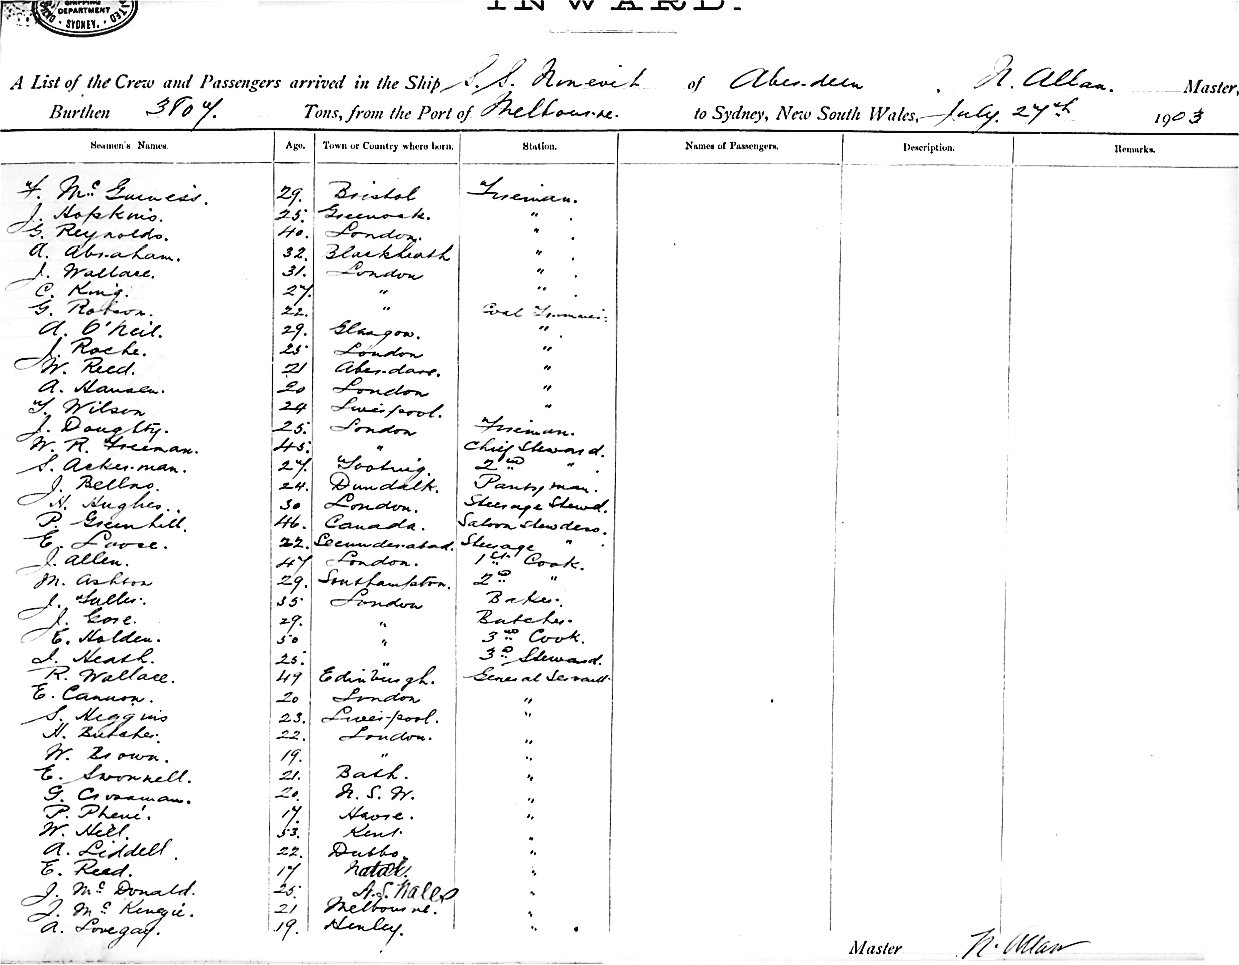 SHIPPING
DEPARTMENT
SYDNEY.
INWARD.
A List of the Crew and Passengers arrived in the Ship S.S. Ninevit of Aberdeen, N. Allan. Master,
Burthen 3807. Tons, from the Port of Melbourne. to Sydney, New South Wales, July 27th 1903
Seamen's Names. Age. Town or Country where born. Station. Names of Passengers. Description. Remarks.
F. McGuiness. 29. Bristol Fireman.
J. Hopkins. 25. Greenock. " .
G. Reynolds. 40. London. " .
A. Abraham. 32. Blackheath " .
J. Wallace. 31. London " .
C. King. 27. " " .
G. Robson. 22. " Coal Trimmer.
A. O'Neil. 29. Glasgow. "
J. Roche. 25 London "
W. Reed. 21 Aberdare. "
A. Hansen. 20 London "
T. Wilson 24 Liverpool. "
J. Doughty. 25. London Fireman.
W. R. Freeman. 45. " Chief Steward.
S. Ackerman. 27 Tooting. 2nd " .
J. Bellno. 24. Dundalk. Pantryman.
H. Hughes. 30 London. Steerage Stewd.
P. Greenhill. 46. Canada. Saloon Stewdess.
E. Loose. 22. Secunderabad. Steerage " .
J. Allen. 47 London. 1st Cook.
M. Ashton 29. Southampton. 2nd "
J. Fuller. 35 London Baker.
J. Gore. 29. " Butcher.
E. Holden. 50 " 3rd Cook.
J. Heath. 25. " 3rd Steward.
R. Wallace. 49 Edinburgh. General Servant.
E. Cannon. 20 London "
S. Higgins 23. Liverpool. "
H. Butcher. 22. London. "
W. Brown. 19. " "
E. Swonnell. 21. Bath. "
G. Crossman. 20. N. S. W. "
P. Phené. 17. Havre. "
W. Hill. 53. Kent. "
A. Liddell. 22. Dubbo. "
E. Reed. 17 Natal. "
J. McDonald. 25. N.S. Wales "
J. McKenzie. 21 Melbourne. "
A. Lovegay. 19. Henley. "
Master N. Allan